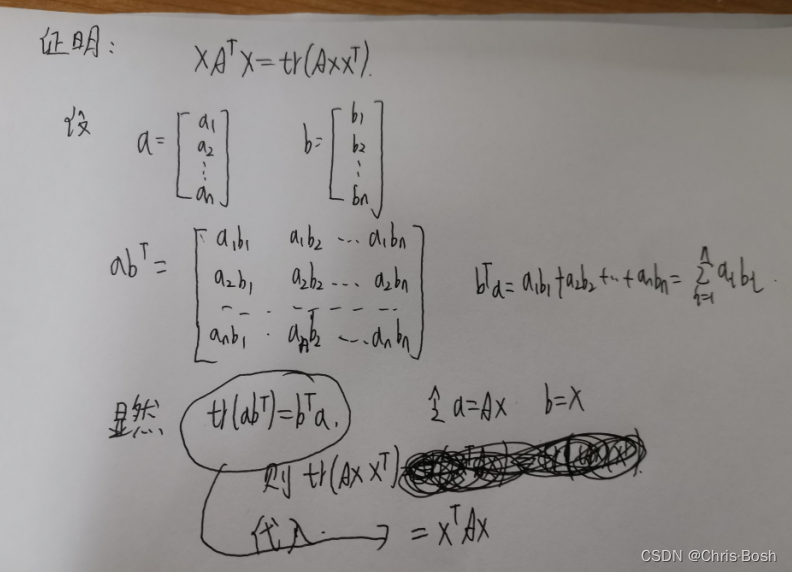 证明: XA^T X = tr(AXX^T).
设 a = [a₁ a₂ ⋮ an] b = [b₁ b₂ ⋮ bn]
ab^T = [a₁b₁ a₁b₂ ... a₁bn
a₂b₁ a₂b₂ ... a₂bn
- - - - - - -
anb₁ . anb₂ ... anbn]
b^T a = a₁b₁ + a₂b₂ + ... + anbn = Σ aibi .
显然 tr(ab^T) = b^T a. 令 a = AX b = X
则 tr(AX X^T)
代入. → = X^T AX
CSDN @Chris·Bosh